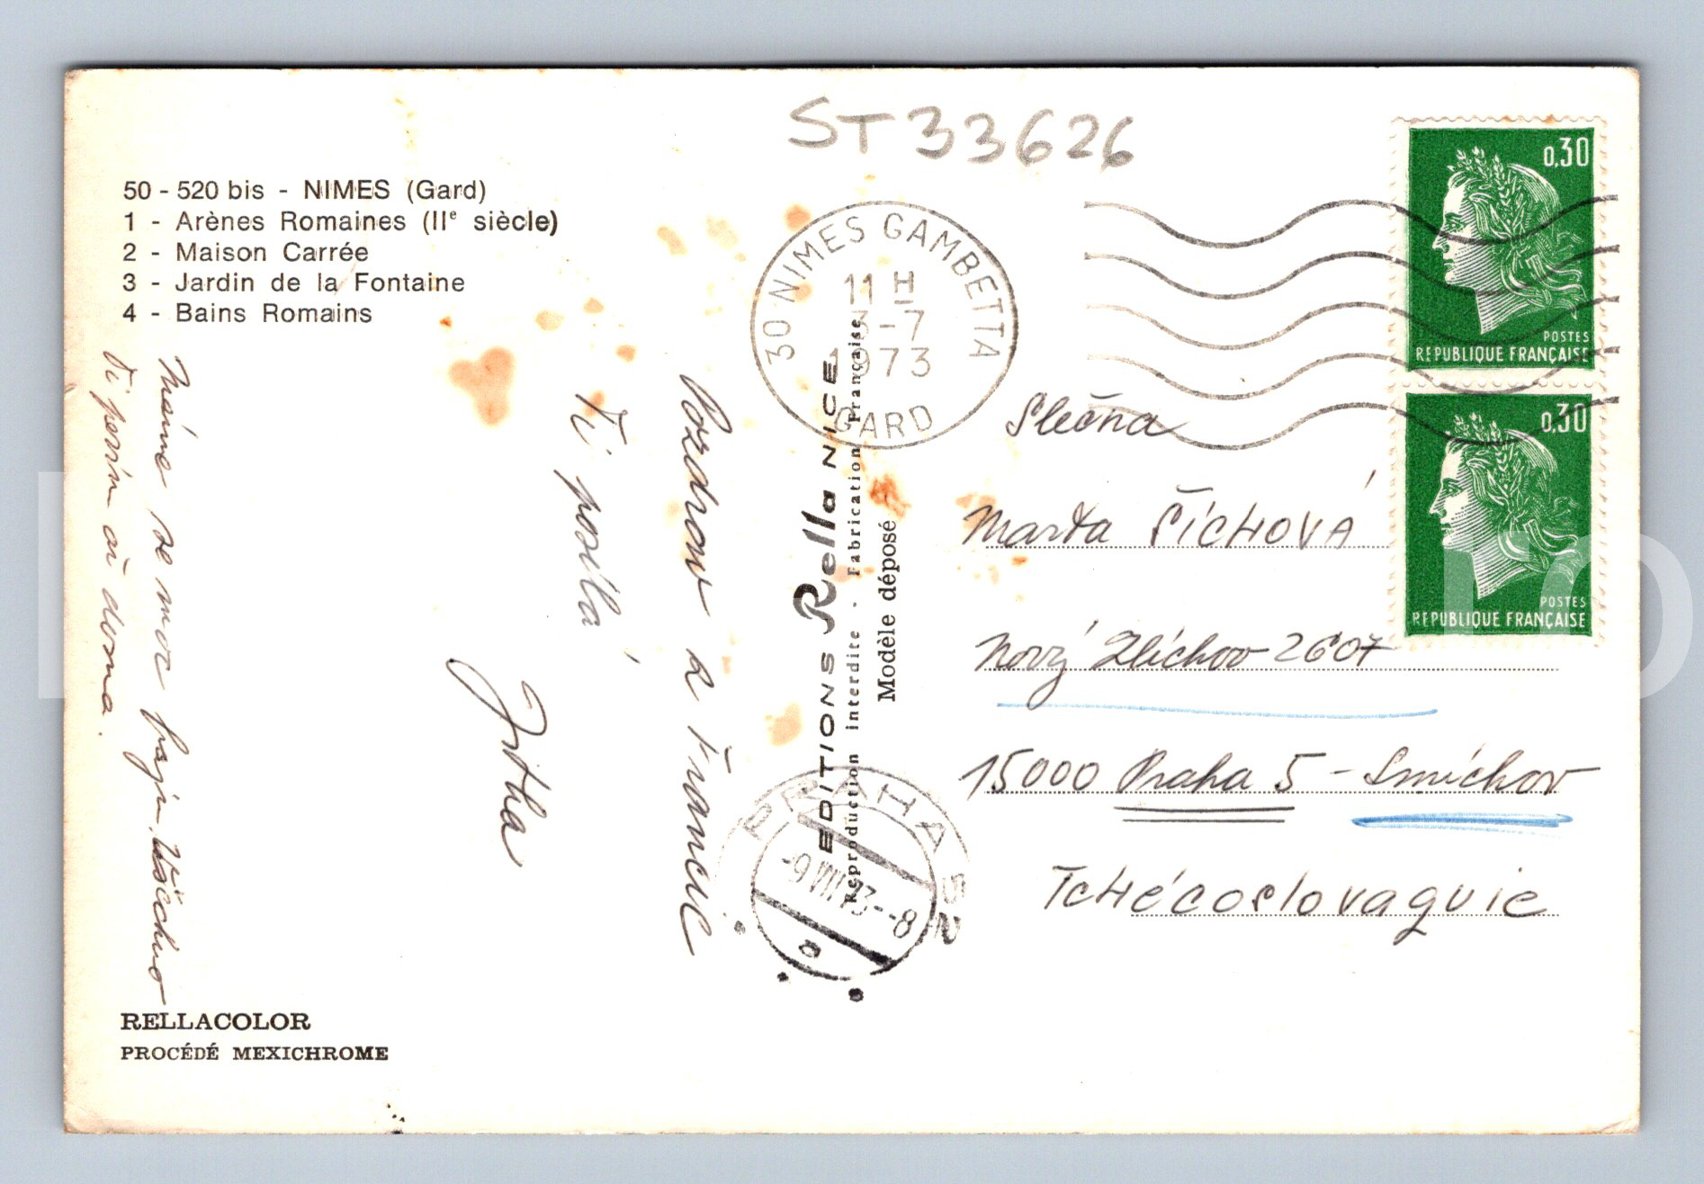 ST 33626
50 - 520 bis - NIMES (Gard)
1 - Arènes Romaines (IIe siècle)
2 - Maison Carrée
3 - Jardin de la Fontaine
4 - Bains Romains
Pozdrav z Francie
Ti posílá
Jitka
Máme se moc fajn. Všechno
Ti povím až doma.
RELLACOLOR
PROCÉDÉ MEXICHROME
EDITIONS Rella NICE
Reproduction interdite - Fabrication Française
Modèle déposé
30 NIMES GAMBETTA
11 H
-7
1973
GARD
PRAHA 52
-9.VIII.73--8
a
0,30
POSTES
REPUBLIQUE FRANÇAISE
0,30
POSTES
REPUBLIQUE FRANÇAISE
Slečna
Marta ŠÍCHOVÁ
Nový Zlíchov 2607
15000 Praha 5 - Smíchov
Tchécoslovaquie